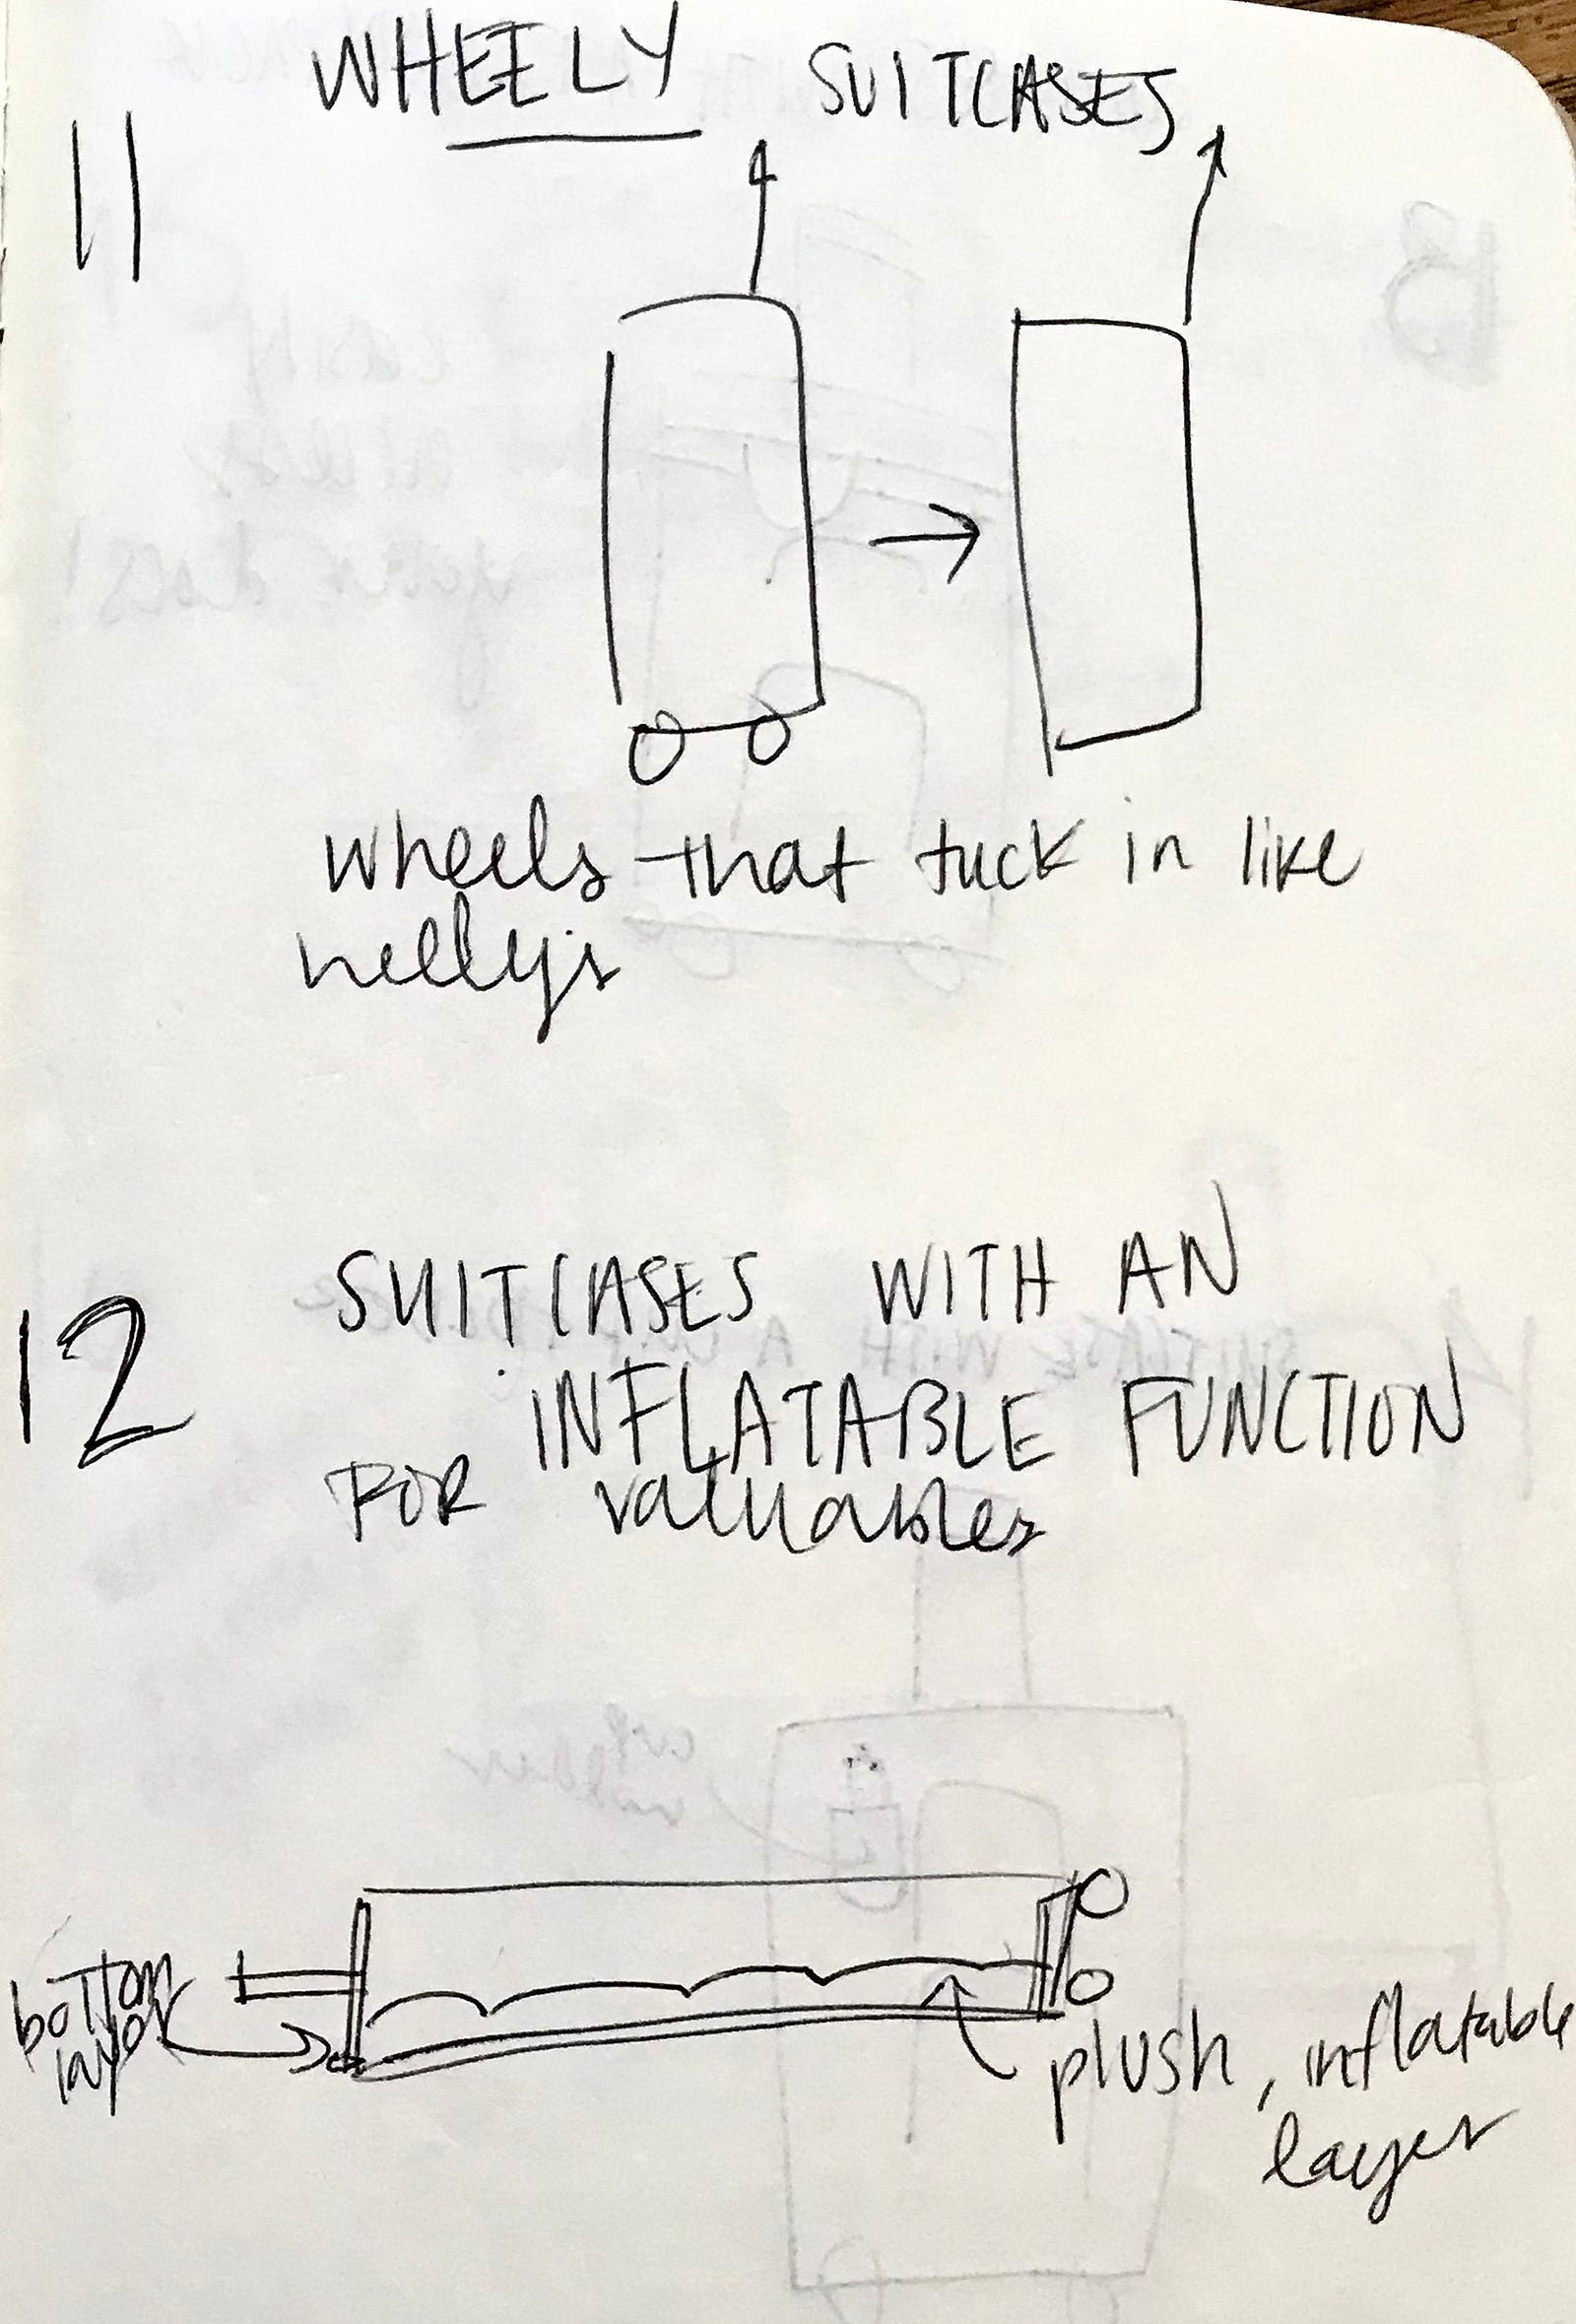 11
WHEELY SUITCASES
wheels that tuck in like
nellys
12
SUITCASES WITH AN
INFLATABLE FUNCTION
FOR valuables
bottom
layer
plush, inflatable
layer